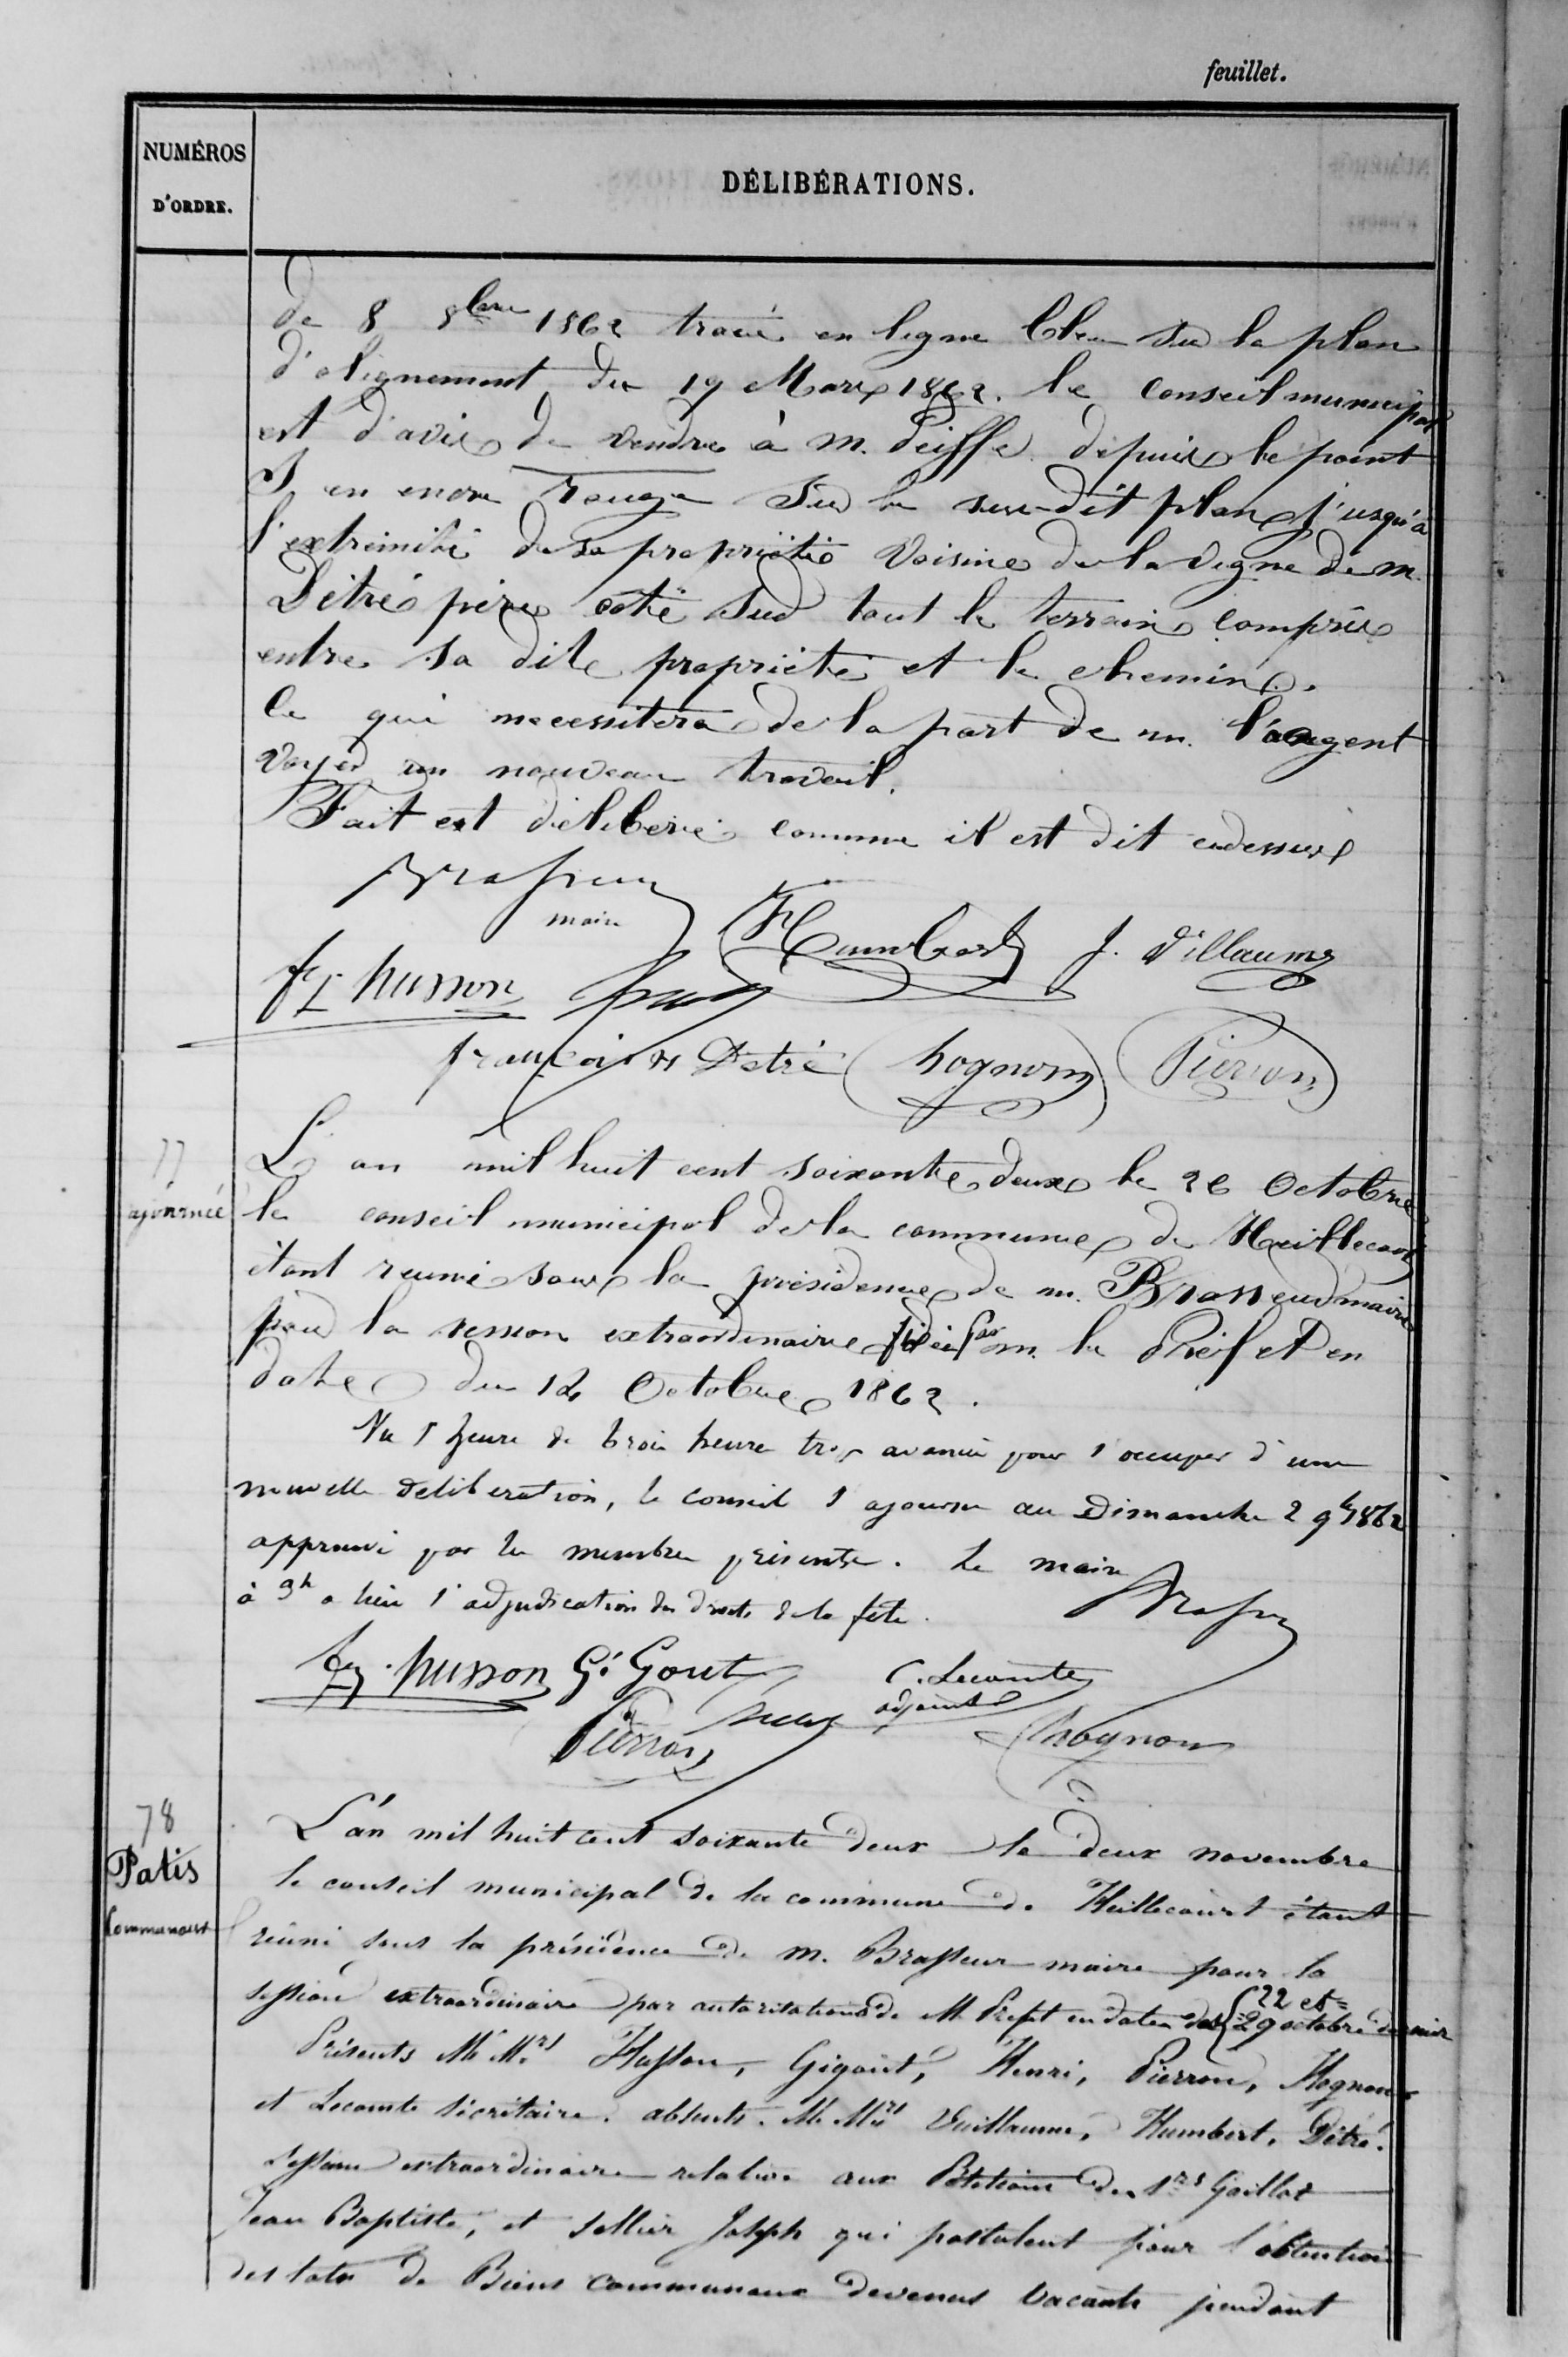 feuillet.
NUMÉROS
D'ORDRE.
DÉLIBÉRATIONS.
de 8 8bre 1862 tracé en ligne bleu sur le plan
d'alignement du 19 Mars 1862. le conseil municipal
est d'avis de vendre à m. Peiffe depuis le point
S en encre rouge sur le sus-dit plan jusqu'à
l'extrémité de sa propriété voisine de la vigne de m.
Dêtré père côté sud tout le terrain compris
entre sa dite propriété et le chemin.
Ce qui necessitera de la part de m. l'agent
Voyer un nouveau travail.
Fait est délibéré comme il est dit cidessus
Brasseur
maire
Humbert J. Villaume
fx husson
françois Detré hognon Pierron
77
ajournée
L'an mil huit cent soixante deux le 26 Octobre
le conseil municipal de la commune de Heillecourt
étant reuni sous la présidence de m. Brasseur maire
pour la session extraordinaire fixée par m. le Préfet en
date du 14 Octobre 1862.
Vu l'heure de trois heure trop avancée pour s'occuper d'une
nouvelle deliberation, le conseil s'ajourne au Dimanche 2 9bre 1862
approuvé par les membres présents. Le maire
à 3h a lieu l'adjudication des droits de la fête.
Brasseur
fx. husson Gi Gout C. Lecomte
adjoint
Pierron hognon
78
Patis
Communaux
L'an mil huit cent soixante deux le deux novembre
le conseil municipal de la commune de Heillecourt étant
réuni sous la présidence de m. Brasseur maire pour la
session extraordinaire par autorisations de M. Prefet en dates des 22 et
29 octobre dernier
Présents M. Mrs Husson, Gigout, Henri, Pierron, Hognon
et Lecomte sécrétaire. absents. M. Mrs Vuillaume, Humbert, Dêtré.
Session extraordinaire relative aux Pétitions des Srs Gaillot
Jean Baptiste, et Sellier Joseph qui postulent pour l'obtention
des lots de Biens Communaux devenus vacants pendant